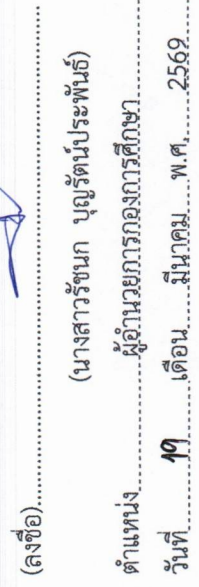 (ลงชื่อ)
(นางสาวรัชนก บุญรัตน์ประพันธ์)
ตำแหน่ง ผู้อำนวยการกองการศึกษา
วันที่ 19 เดือน มีนาคม พ.ศ. 2569